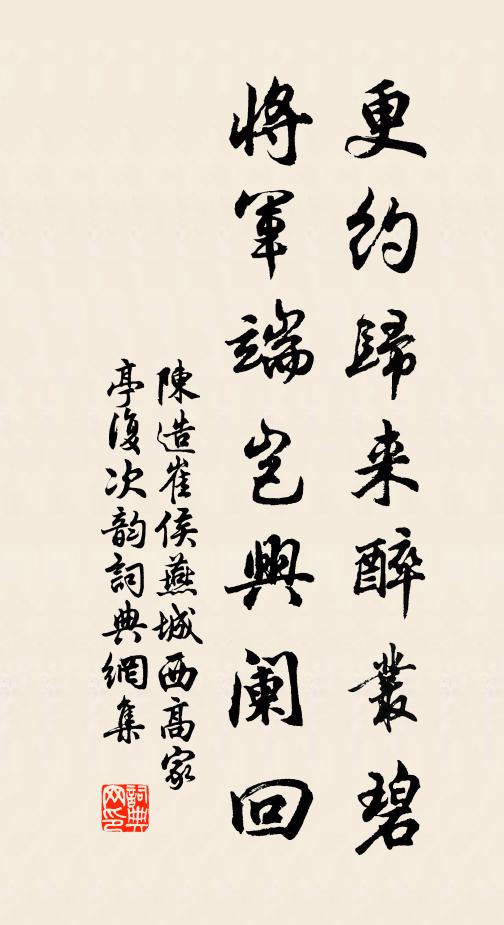 更约歸来醉叢碧
將軍端岂興阑回
陳造崔侯燕城西高家
亭復次韵詞典網集
詞典網印